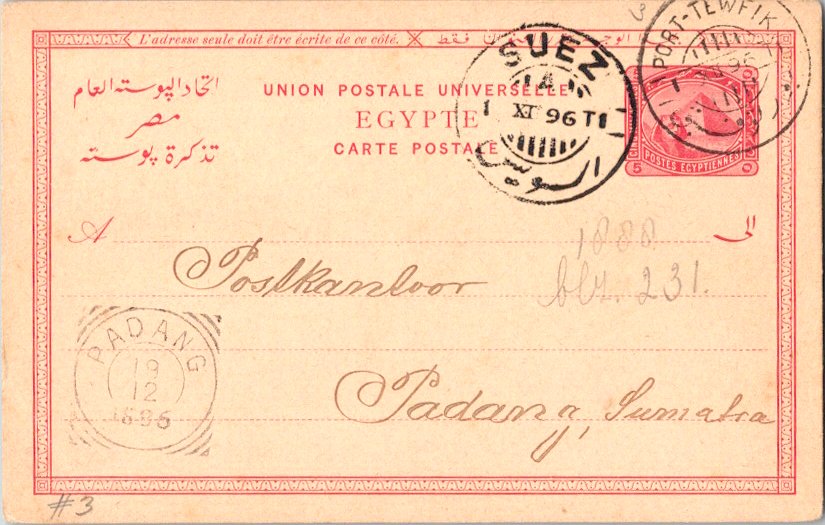 L'adresse seule doit être écrite de ce côté.
فقط
اتحاد البوسته العام
مصر
تذكرة بوسته
UNION POSTALE UNIVERSELLE
EGYPTE
CARTE POSTALE
SUEZ
1 XI 96 T1
السويس
PORT-TEWFIK
96
POSTES EGYPTIENNES
5
A
الى
1888
blz. 231.
Postkantoor
Padang, Sumatra
PADANG
19
12
1896
#3